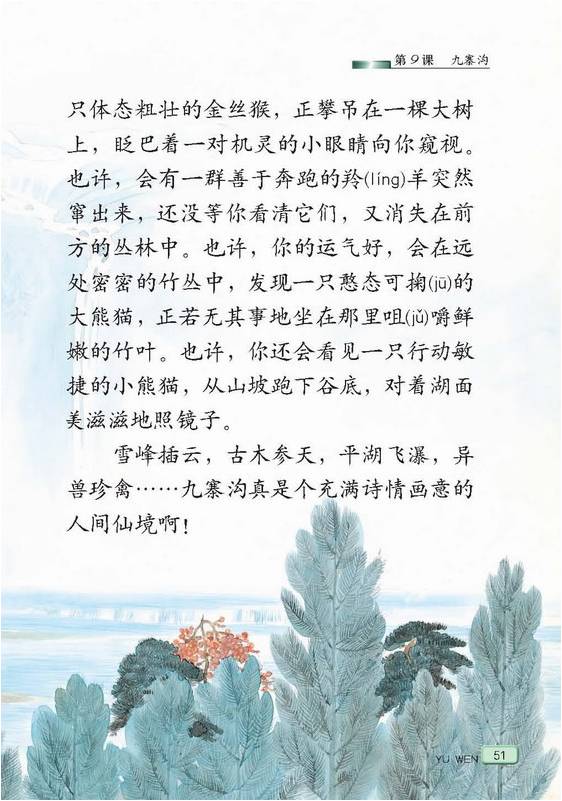 第9课 九寨沟
只体态粗壮的金丝猴，正攀吊在一棵大树
上，眨巴着一对机灵的小眼睛向你窥视。
也许，会有一群善于奔跑的羚(líng)羊突然
窜出来，还没等你看清它们，又消失在前
方的丛林中。也许，你的运气好，会在远
处密密的竹丛中，发现一只憨态可掬(jū)的
大熊猫，正若无其事地坐在那里咀(jǔ)嚼鲜
嫩的竹叶。也许，你还会看见一只行动敏
捷的小熊猫，从山坡跑下谷底，对着湖面
美滋滋地照镜子。
雪峰插云，古木参天，平湖飞瀑，异
兽珍禽……九寨沟真是个充满诗情画意的
人间仙境啊！
YU WEN 51